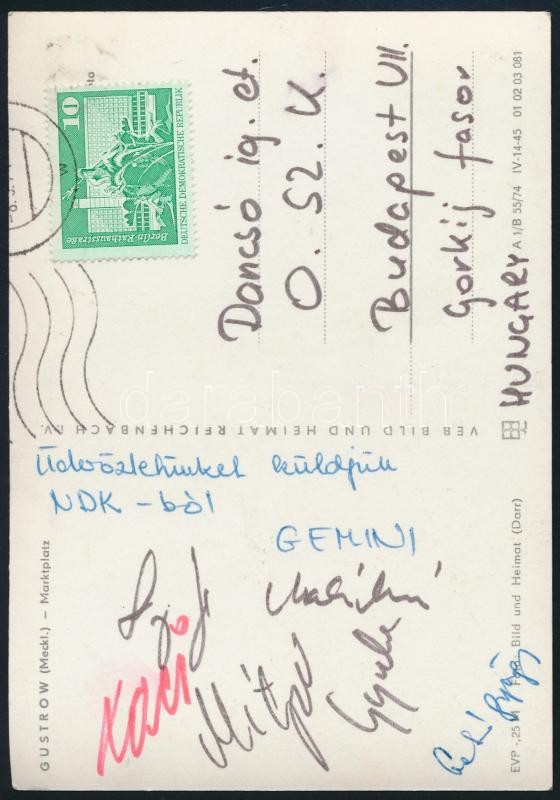 10
DEUTSCHE DEMOKRATISCHE REPUBLIK
Berlin-Rathausstraße
Dancsó ig. et.
O. SZ. K.
Budapest VII.
Gorkij fasor
HUNGARY
A 1/B 55/74 IV-14-45 01 02 03 081
VEB BILD UND HEIMAT REICHENBACH i.V.
darabanth
Üdvözletünket küldjük
NDK-ból
GEMINI
Kaci
Gyula
GUSTROW (Meckl.) – Marktplatz
EVP -,25 M Foto: Bild und Heimat (Darr)